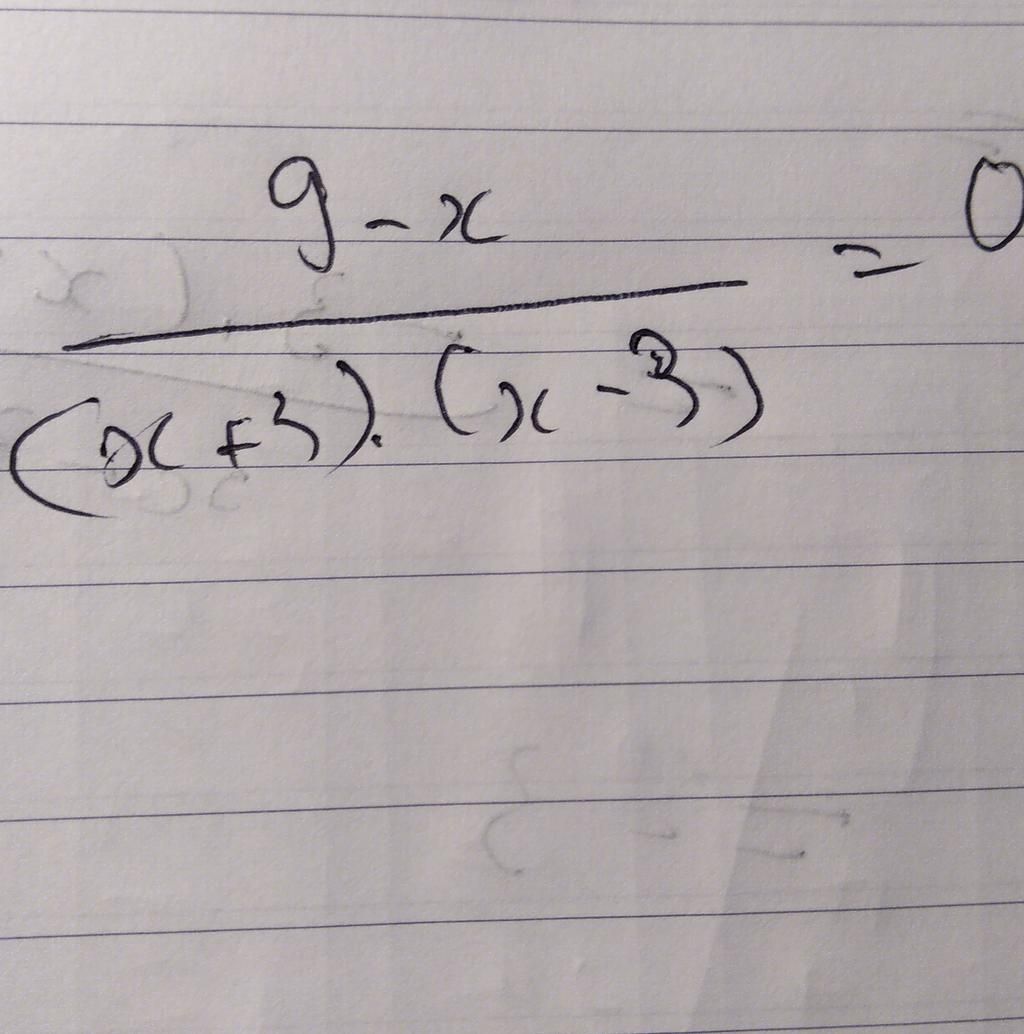 9 - x
= 0
(x + 3) . (x - 3)